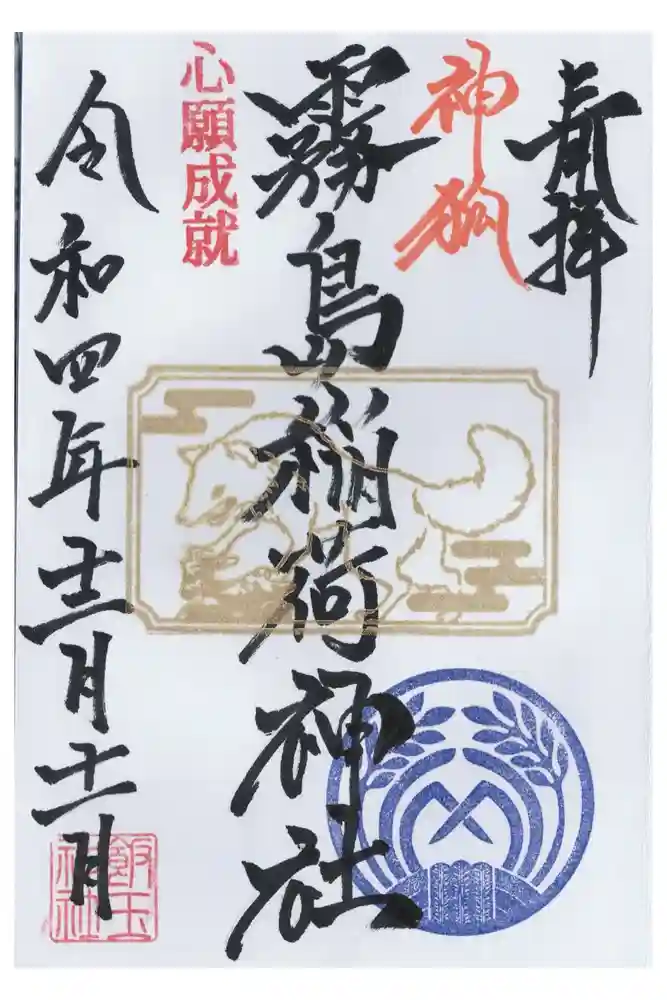 奉拝
神狐
霧島稲荷神社
心願成就
令和四年十二月十一日
飯玉神社